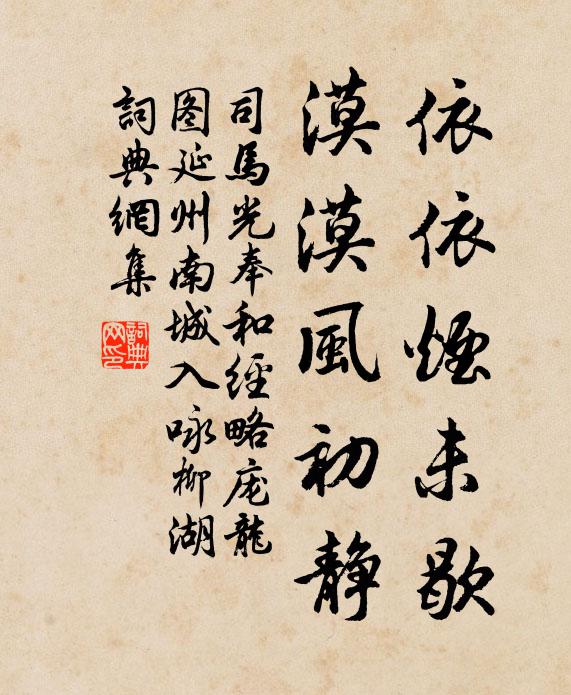 依依煙未歇
漠漠風初静
司馬光奉和經略庞龍
图延州南城入咏柳湖
詞典網集
詞典
网印